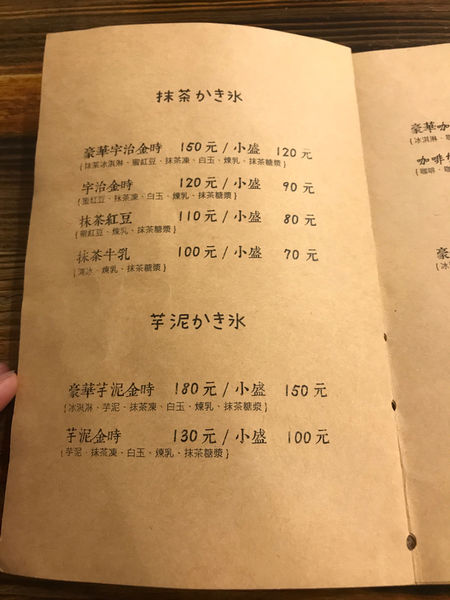 抹茶かき氷
豪華宇治金時 150元/小盛 120元
{抹茶冰淇淋、蜜紅豆、抹茶凍、白玉、煉乳、抹茶糖漿}
宇治金時 120元/小盛 90元
{蜜紅豆、抹茶凍、白玉、煉乳、抹茶糖漿}
抹茶紅豆 110元/小盛 80元
{蜜紅豆、煉乳、抹茶糖漿}
抹茶牛乳 100元/小盛 70元
{清冰、煉乳、抹茶糖漿}
芋泥かき氷
豪華芋泥金時 180元/小盛 150元
{冰淇淋、芋泥、抹茶凍、白玉、煉乳、抹茶糖漿}
芋泥金時 130元/小盛 100元
{芋泥、抹茶凍、白玉、煉乳、抹茶糖漿}
豪華咖
{冰淇淋、
咖啡
{咖啡、
豪
{冰